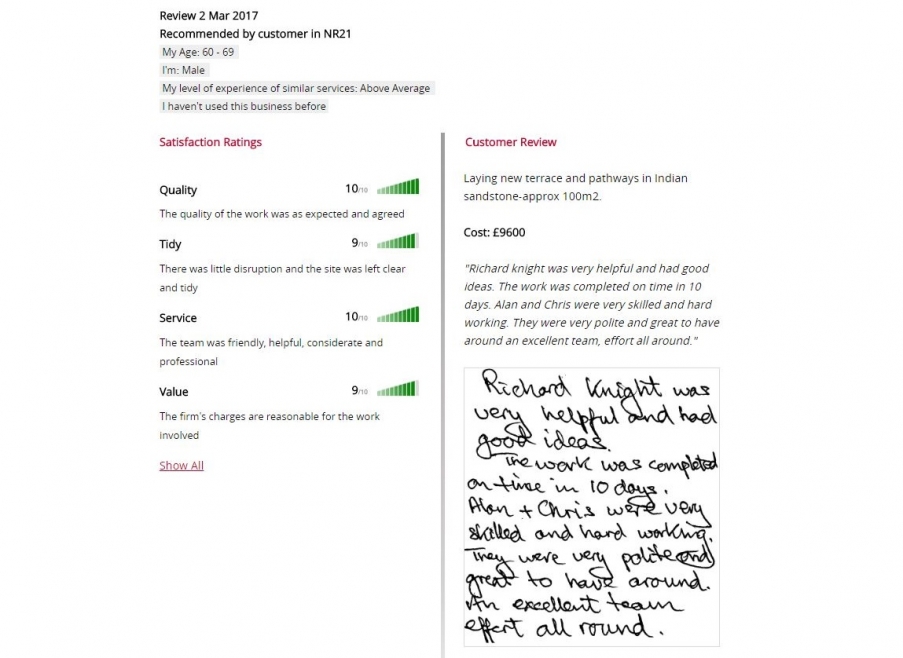 Review 2 Mar 2017
Recommended by customer in NR21
My Age: 60 - 69
I'm: Male
My level of experience of similar services: Above Average
I haven't used this business before
Satisfaction Ratings
Quality 10/10
The quality of the work was as expected and agreed
Tidy 9/10
There was little disruption and the site was left clear
and tidy
Service 10/10
The team was friendly, helpful, considerate and
professional
Value 9/10
The firm's charges are reasonable for the work
involved
Show All
Customer Review
Laying new terrace and pathways in Indian
sandstone-approx 100m2.
Cost: £9600
"Richard knight was very helpful and had good
ideas. The work was completed on time in 10
days. Alan and Chris were very skilled and hard
working. They were very polite and great to have
around an excellent team, effort all around."
Richard Knight was
very helpful and had
good ideas.
The work was completed
on time in 10 days.
Alan + Chris were very
skilled and hard working.
They were very polite and
great to have around.
An excellent team
effort all round.